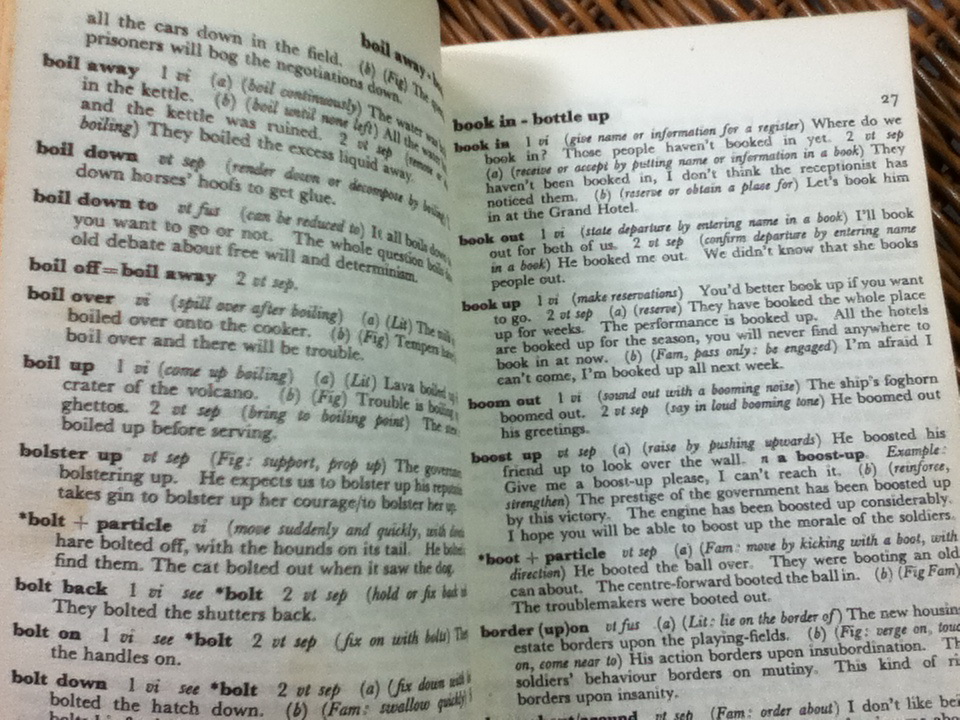 boil away - b
all the cars down in the field. (b) (Fig) The
prisoners will bog the negotiations down.
boil away 1 vi (a) (boil continuously) The water was
in the kettle. (b) (boil until none left) All the water
and the kettle was ruined. 2 vt sep
boiling) They boiled the excess liquid away.
boil down vt sep (render down or decompose by boiling
down horses' hoofs to get glue.
boil down to vt fus (can be reduced to) It all boils down
you want to go or not. The whole question boils
old debate about free will and determinism.
boil off=boil away 2 vt sep.
boil over vi (spill over after boiling) (a) (Lit) The milk
boiled over onto the cooker. (b) (Fig) Tempers
boil over and there will be trouble.
boil up 1 vi (come up boiling) (a) (Lit) Lava boiled up
crater of the volcano. (b) (Fig) Trouble is boiling
ghettos. 2 vt sep (bring to boiling point) The
boiled up before serving.
bolster up vt sep (Fig: support, prop up) The
bolstering up. He expects us to bolster up his
takes gin to bolster up her courage/to bolster her up.
*bolt + particle vi (move suddenly and quickly, with
hare bolted off, with the hounds on its tail. He bolted
find them. The cat bolted out when it saw the dog.
bolt back 1 vi see *bolt 2 vt sep (hold or fix back
They bolted the shutters back.
bolt on 1 vi see *bolt 2 vt sep (fix on with bolts) The
the handles on.
bolt down 1 vi see *bolt 2 vt sep (a) (fix down with
bolted the hatch down. (b) (Fam: swallow quickly)
27
book in - bottle up
book in 1 vi (give name or information for a register) Where do we
book in? Those people haven't booked in yet. 2 vt sep
(a) (receive or accept by putting name or information in a book) They
haven't been booked in, I don't think the receptionist has
noticed them. (b) (reserve or obtain a place for) Let's book him
in at the Grand Hotel.
book out 1 vi (state departure by entering name in a book) I'll book
out for both of us. 2 vt sep (confirm departure by entering name
in a book) He booked me out. We didn't know that she books
people out.
book up 1 vi (make reservations) You'd better book up if you want
to go. 2 vt sep (a) (reserve) They have booked the whole place
up for weeks. The performance is booked up. All the hotels
are booked up for the season, you will never find anywhere to
book in at now. (b) (Fam, pass only: be engaged) I'm afraid I
can't come, I'm booked up all next week.
boom out 1 vi (sound out with a booming noise) The ship's foghorn
boomed out. 2 vt sep (say in loud booming tone) He boomed out
his greetings.
boost up vt sep (a) (raise by pushing upwards) He boosted his
friend up to look over the wall. n a boost-up. Example:
Give me a boost-up please, I can't reach it. (b) (reinforce,
strengthen) The prestige of the government has been boosted up
by this victory. The engine has been boosted up considerably.
I hope you will be able to boost up the morale of the soldiers.
*boot + particle vt sep (a) (Fam: move by kicking with a boot, with
direction) He booted the ball over. They were booting an old
can about. The centre-forward booted the ball in. (b) (Fig Fam)
The troublemakers were booted out.
border (up)on vt fus (a) (Lit: lie on the border of) The new housing
estate borders upon the playing-fields. (b) (Fig: verge on, touch
on, come near to) His action borders upon insubordination. Th
soldiers' behaviour borders on mutiny. This kind of ri
borders upon insanity.
vt sep (Fam: order about) I don't like bei